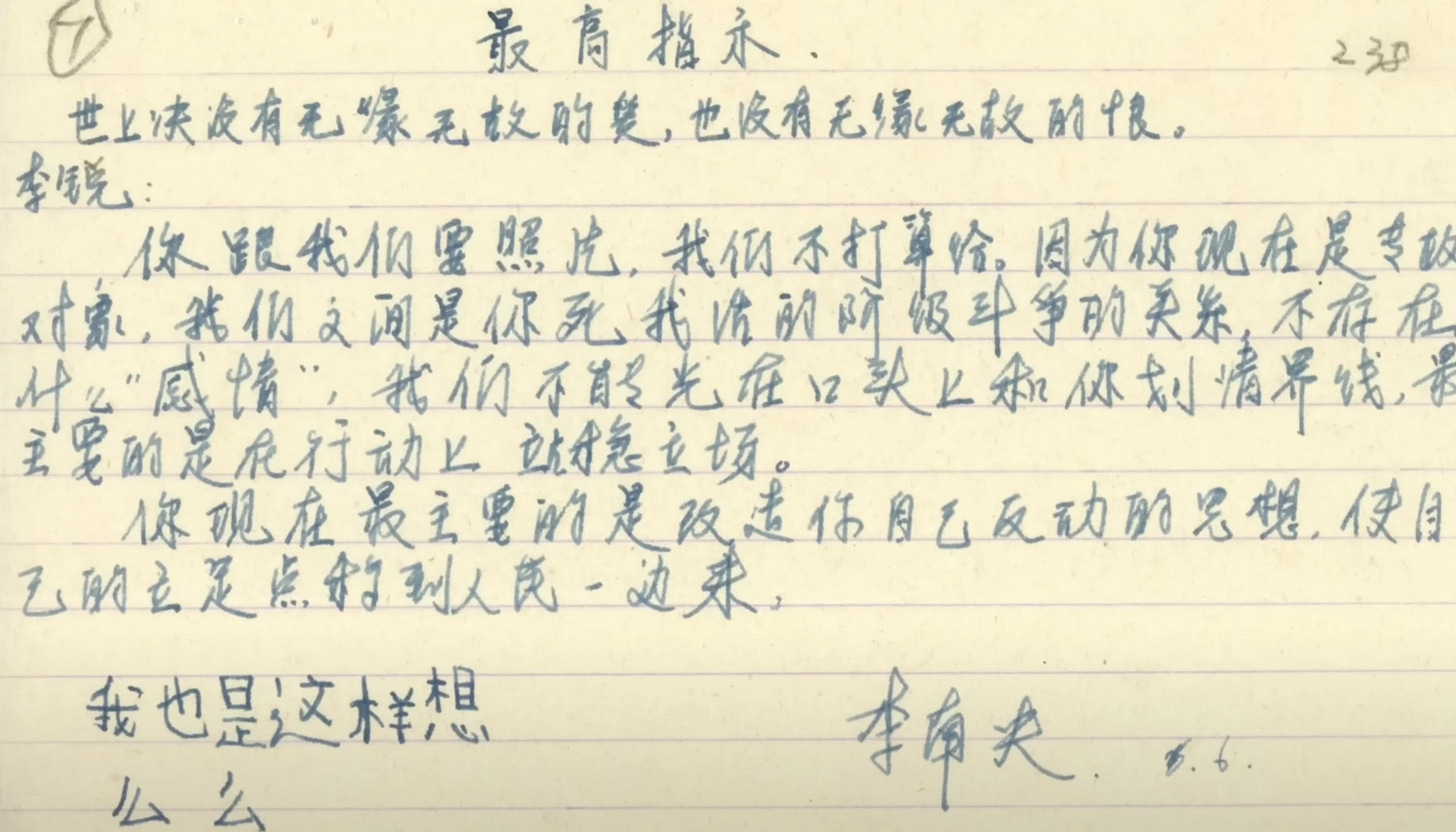 ⑦ 最高指示. 238
世上决没有无缘无故的爱,也没有无缘无故的恨。
李锐:
你跟我们要照片,我们不打算给。因为你现在是专政
对象,我们之间是你死我活的阶级斗争的关系,不存在
什么"感情",我们不能光在口头上和你划清界线,最
主要的是在行动上站稳立场。
你现在最主要的是改造你自己反动的思想,使自
己的立足点移到人民一边来,
我也是这样想
么么
李南央. 6.